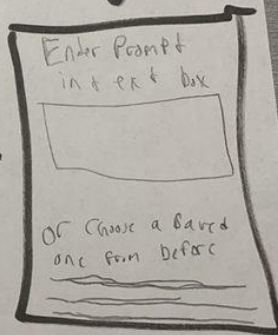 Enter Prompt
in text box
Or Choose a Saved
one from before